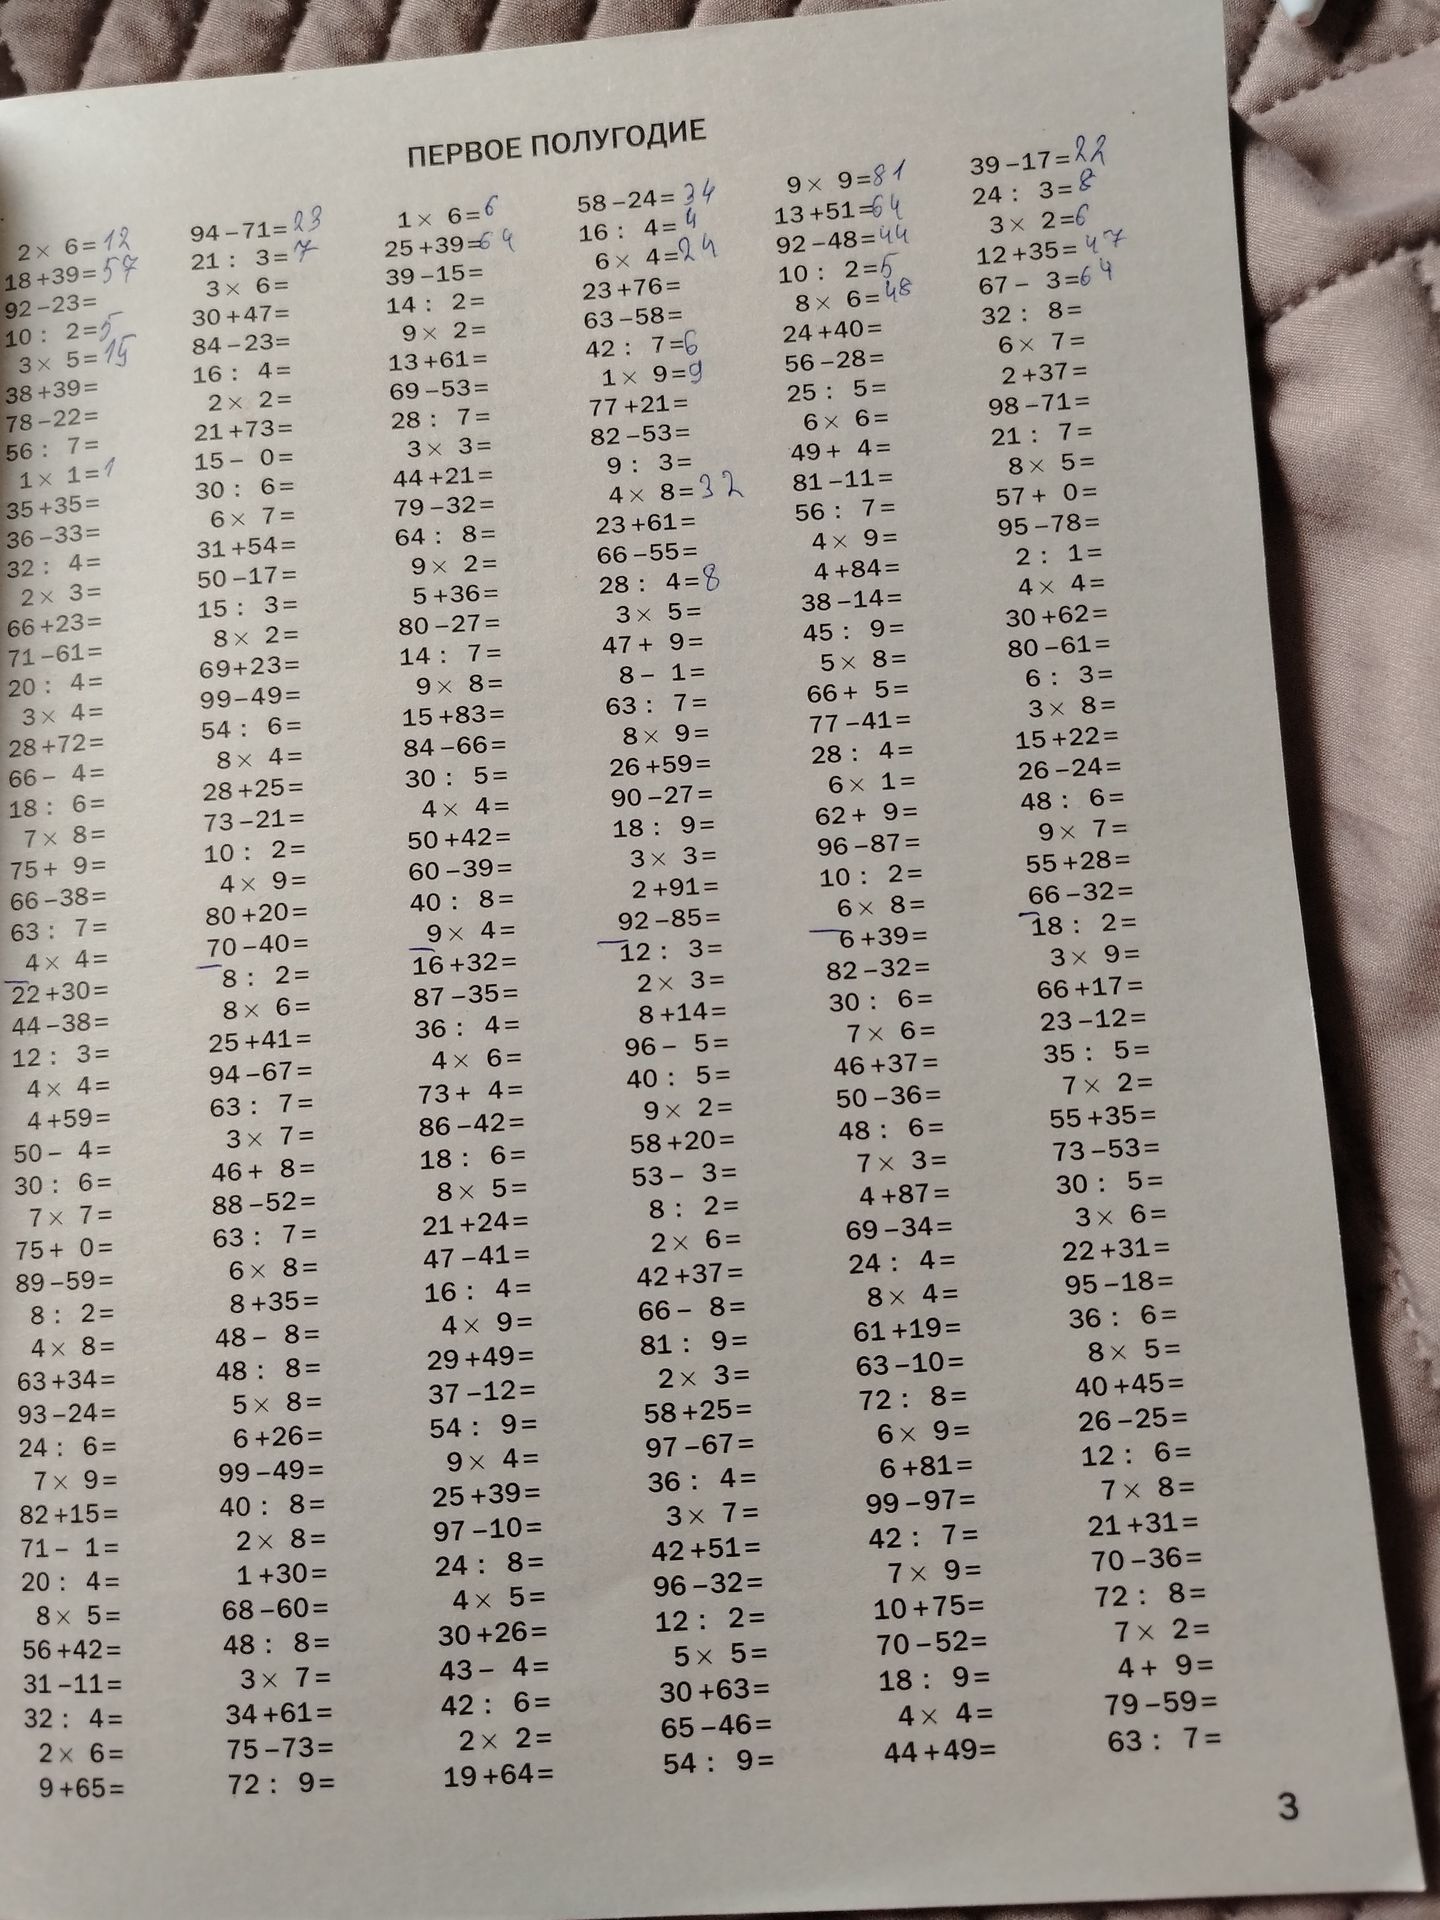 ПЕРВОЕ ПОЛУГОДИЕ
2× 6=12
18+39=57
92–23=
10: 2=5
3× 5=15
38+39=
78–22=
56: 7=
1× 1=1
35+35=
36–33=
32: 4=
2× 3=
66+23=
71–61=
20: 4=
3× 4=
28+72=
66– 4=
18: 6=
7× 8=
75+ 9=
66–38=
63: 7=
4× 4=
22+30=
44–38=
12: 3=
4× 4=
4+59=
50– 4=
30: 6=
7× 7=
75+ 0=
89–59=
8: 2=
4× 8=
63+34=
93–24=
24: 6=
7× 9=
82+15=
71– 1=
20: 4=
8× 5=
56+42=
31–11=
32: 4=
2× 6=
9+65=
94–71=23
21: 3=7
3× 6=
30+47=
84–23=
16: 4=
2× 2=
21+73=
15– 0=
30: 6=
6× 7=
31+54=
50–17=
15: 3=
8× 2=
69+23=
99–49=
54: 6=
8× 4=
28+25=
73–21=
10: 2=
4× 9=
80+20=
70–40=
8: 2=
8× 6=
25+41=
94–67=
63: 7=
3× 7=
46+ 8=
88–52=
63: 7=
6× 8=
8+35=
48– 8=
48: 8=
5× 8=
6+26=
99–49=
40: 8=
2× 8=
1+30=
68–60=
48: 8=
3× 7=
34+61=
75–73=
72: 9=
1× 6=6
25+39=64
39–15=
14: 2=
9× 2=
13+61=
69–53=
28: 7=
3× 3=
44+21=
79–32=
64: 8=
9× 2=
5+36=
80–27=
14: 7=
9× 8=
15+83=
84–66=
30: 5=
4× 4=
50+42=
60–39=
40: 8=
9× 4=
16+32=
87–35=
36: 4=
4× 6=
73+ 4=
86–42=
18: 6=
8× 5=
21+24=
47–41=
16: 4=
4× 9=
29+49=
37–12=
54: 9=
9× 4=
25+39=
97–10=
24: 8=
4× 5=
30+26=
43– 4=
42: 6=
2× 2=
19+64=
58–24=34
16: 4=4
6× 4=24
23+76=
63–58=
42: 7=6
1× 9=9
77+21=
82–53=
9: 3=
4× 8=32
23+61=
66–55=
28: 4=8
3× 5=
47+ 9=
8– 1=
63: 7=
8× 9=
26+59=
90–27=
18: 9=
3× 3=
2+91=
92–85=
12: 3=
2× 3=
8+14=
96– 5=
40: 5=
9× 2=
58+20=
53– 3=
8: 2=
2× 6=
42+37=
66– 8=
81: 9=
2× 3=
58+25=
97–67=
36: 4=
3× 7=
42+51=
96–32=
12: 2=
5× 5=
30+63=
65–46=
54: 9=
9× 9=81
13+51=64
92–48=44
10: 2=5
8× 6=48
24+40=
56–28=
25: 5=
6× 6=
49+ 4=
81–11=
56: 7=
4× 9=
4+84=
38–14=
45: 9=
5× 8=
66+ 5=
77–41=
28: 4=
6× 1=
62+ 9=
96–87=
10: 2=
6× 8=
6+39=
82–32=
30: 6=
7× 6=
46+37=
50–36=
48: 6=
7× 3=
4+87=
69–34=
24: 4=
8× 4=
61+19=
63–10=
72: 8=
6× 9=
6+81=
99–97=
42: 7=
7× 9=
10+75=
70–52=
18: 9=
4× 4=
44+49=
39–17=22
24: 3=8
3× 2=6
12+35=47
67– 3=64
32: 8=
6× 7=
2+37=
98–71=
21: 7=
8× 5=
57+ 0=
95–78=
2: 1=
4× 4=
30+62=
80–61=
6: 3=
3× 8=
15+22=
26–24=
48: 6=
9× 7=
55+28=
66–32=
18: 2=
3× 9=
66+17=
23–12=
35: 5=
7× 2=
55+35=
73–53=
30: 5=
3× 6=
22+31=
95–18=
36: 6=
8× 5=
40+45=
26–25=
12: 6=
7× 8=
21+31=
70–36=
72: 8=
7× 2=
4+ 9=
79–59=
63: 7=
3